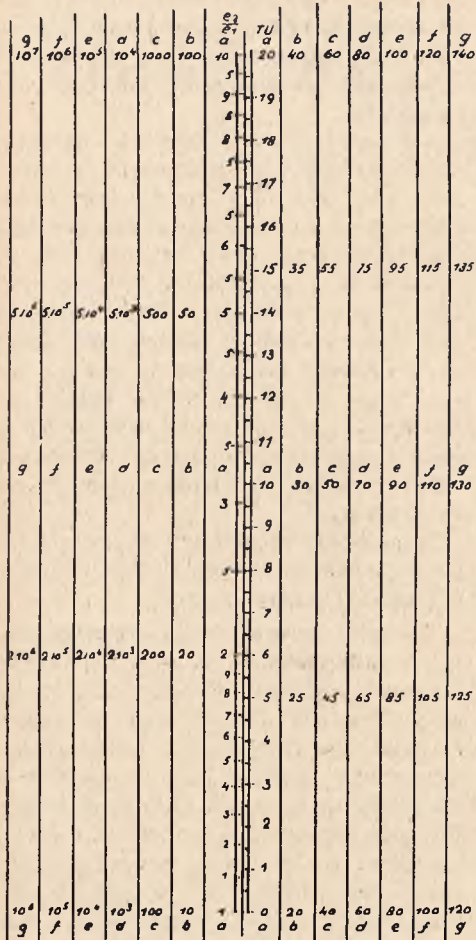 e2
e1 TU
g f e d c b a b c d e f g
10⁷ 10⁶ 10⁵ 10⁴ 1000 100 10 20 40 60 80 100 120 140
5
9 19
8
8 18
5
7 17
5
6 16
15 35 55 75 95 115 135
5
5.10⁵ 5.10⁴ 500 50 5 14
5 13
4 12
11
5
g f e d c b a a b c d e f g
10 30 50 70 90 110 130
3
9
5 8
7
2.10⁶ 2.10⁵ 2.10⁴ 2.10³ 200 20 2 6
9
8 5 25 45 65 85 105 125
7
6 4
5
4 3
3
2 2
1 1
10⁶ 10⁵ 10⁴ 10³ 100 10 1 0 20 40 60 80 100 120
g f e d c b a a b c d e f g